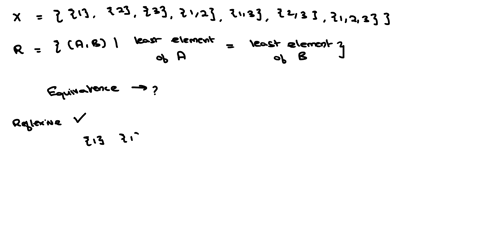 X = { {1}, {2}, {3}, {1,2}, {1,3}, {2,3}, {1,2,3} }
R = { (A,B) | least element of A = least element of B }
Equivalence → ?
Reflexive ✓
{1} {1